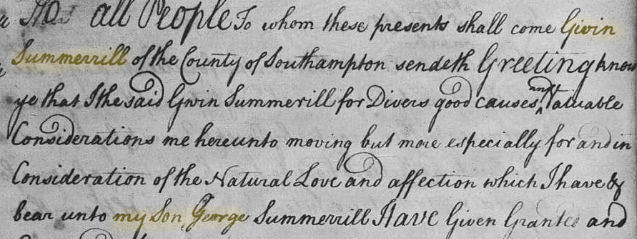 To all People To whom these presents shall come Givin
Summerrill of the County of Southampton sendeth Greeting know
ye that I the said Gwin Summerill for Divers good causes and Valuable
Considerations me hereunto moving but more especially for and in
Consideration of the Natural Love and affection which I have &
bear unto my Son George Summerrill Have Given Granted and